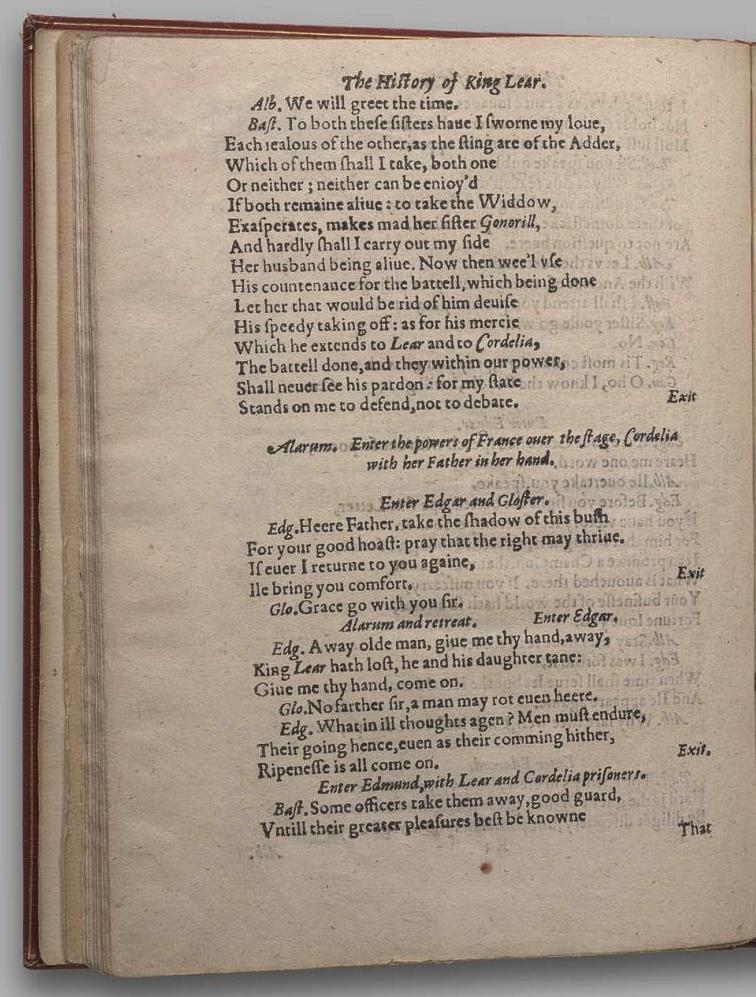 The Hiſtory of King Lear.
Alb. We will greet the time.
Baſt. To both theſe ſiſters haue I ſworne my loue,
Each iealous of the other,as the ſting are of the Adder,
Which of them ſhall I take, both one
Or neither ; neither can be enioy'd
If both remaine aliue : to take the Widdow,
Exaſperates, makes mad her ſiſter Gonorill,
And hardly ſhall I carry out my ſide
Her husband being aliue. Now then wee'l vſe
His countenance for the battell,which being done
Let her that would be rid of him deuiſe
His ſpeedy taking off: as for his mercie
Which he extends to Lear and to Cordelia,
The battell done,and they within our power,
Shall neuer ſee his pardon : for my ſtate
Stands on me to defend,not to debate. Exit
Alarum. Enter the powers of France ouer the ſtage, Cordelia
with her Father in her hand.
Enter Edgar and Gloſter.
Edg. Heere Father, take the ſhadow of this buſh
For your good hoaſt: pray that the right may thriue.
If euer I returne to you againe,
Ile bring you comfort. Exit
Glo. Grace go with you ſir.
Alarum and retreat. Enter Edgar.
Edg. Away olde man, giue me thy hand,away,
King Lear hath loſt, he and his daughter tane:
Giue me thy hand, come on.
Glo. No farther ſir,a man may rot euen heere.
Edg. What in ill thoughts agen ? Men muſt endure,
Their going hence,euen as their comming hither,
Ripeneſſe is all come on. Exit.
Enter Edmund,with Lear and Cordelia priſoners.
Baſt. Some officers take them away,good guard,
Vntill their greater pleaſures beſt be knowne
That